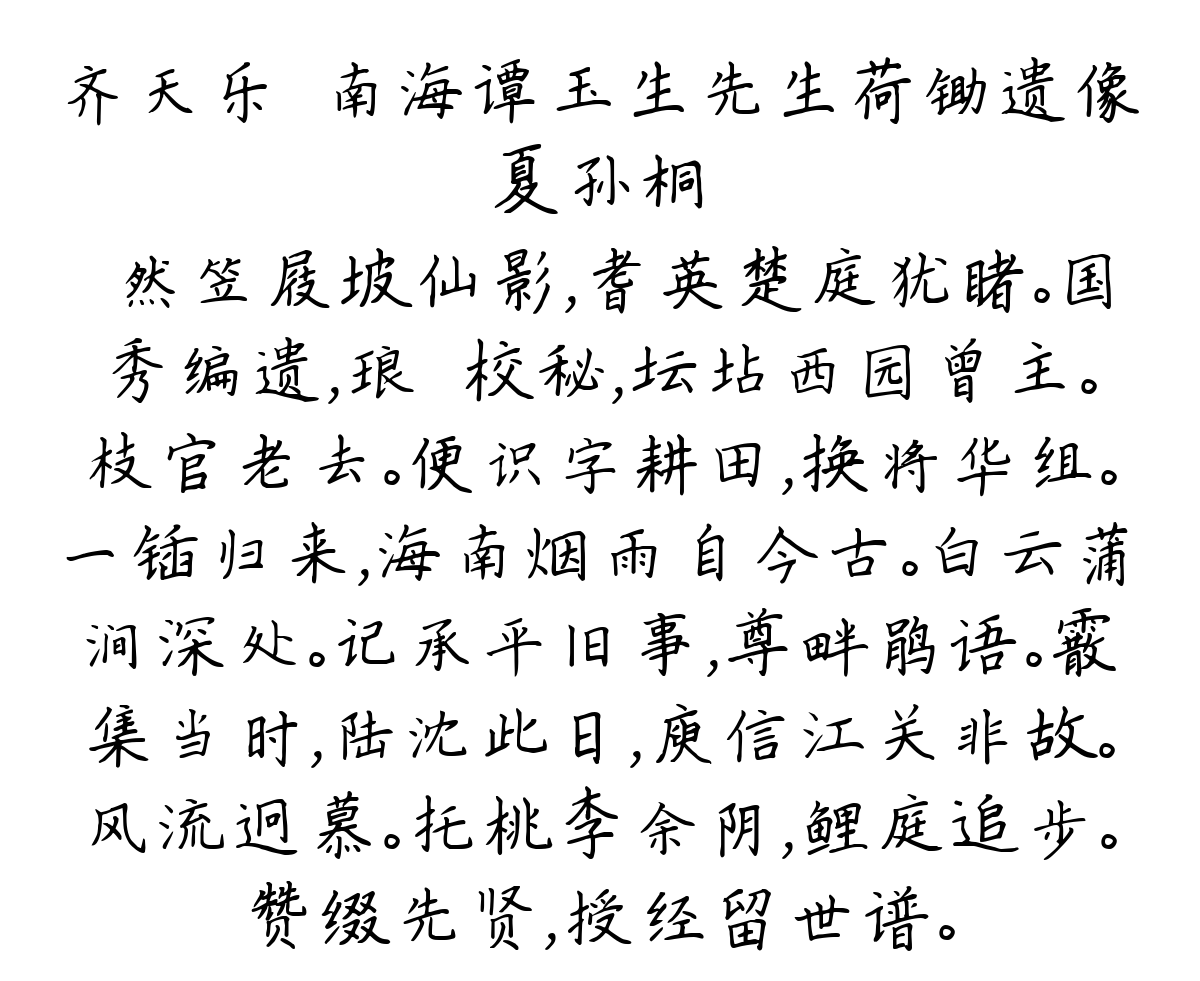 齐天乐 南海谭玉生先生荷锄遗像
夏孙桐
然笠屐坡仙影,耆英楚庭犹睹。国
秀编遗,琅 校秘,坛坫西园曾主。
枝官老去。便识字耕田,换将华组。
一锸归来,海南烟雨自今古。白云蒲
涧深处。记承平旧事,尊畔鹃语。霰
集当时,陆沈此日,庾信江关非故。
风流迥慕。托桃李余阴,鲤庭追步。
赞缀先贤,授经留世谱。